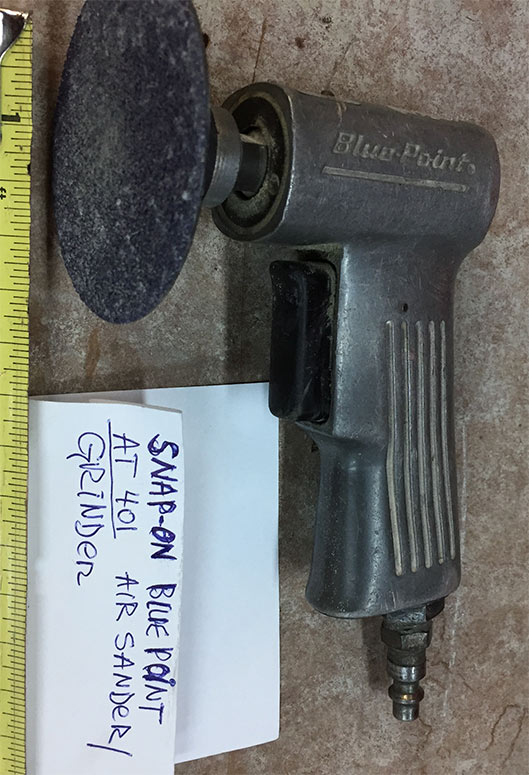 Blue-Point®
SNAP-ON BLUE POINT
AT 401 AIR SANDER/
GRiNDER
1